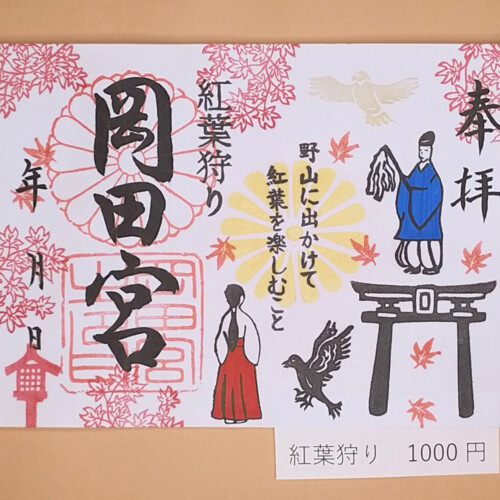 奉拝
野山に出かけて
紅葉を楽しむこと
紅葉狩り
岡田宮
年
月
日
紅葉狩り 1000円